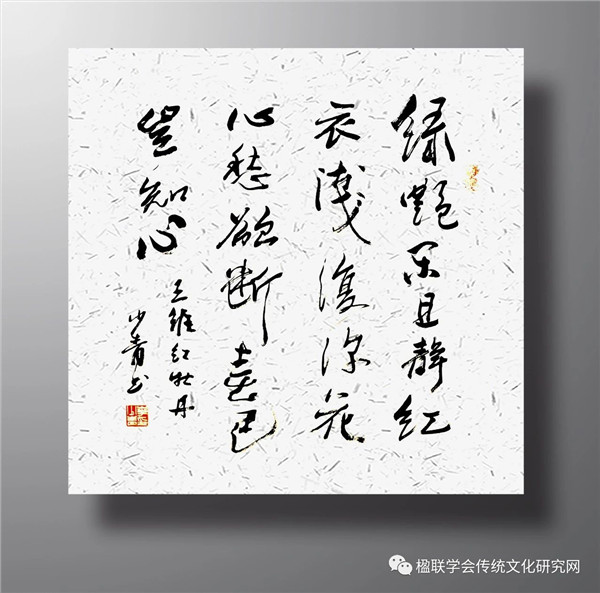 绿艳闲且静红
衣淺復深花
心愁欲断春色
岂知心
王维红牡丹
少青书
楹联学会传统文化研究网